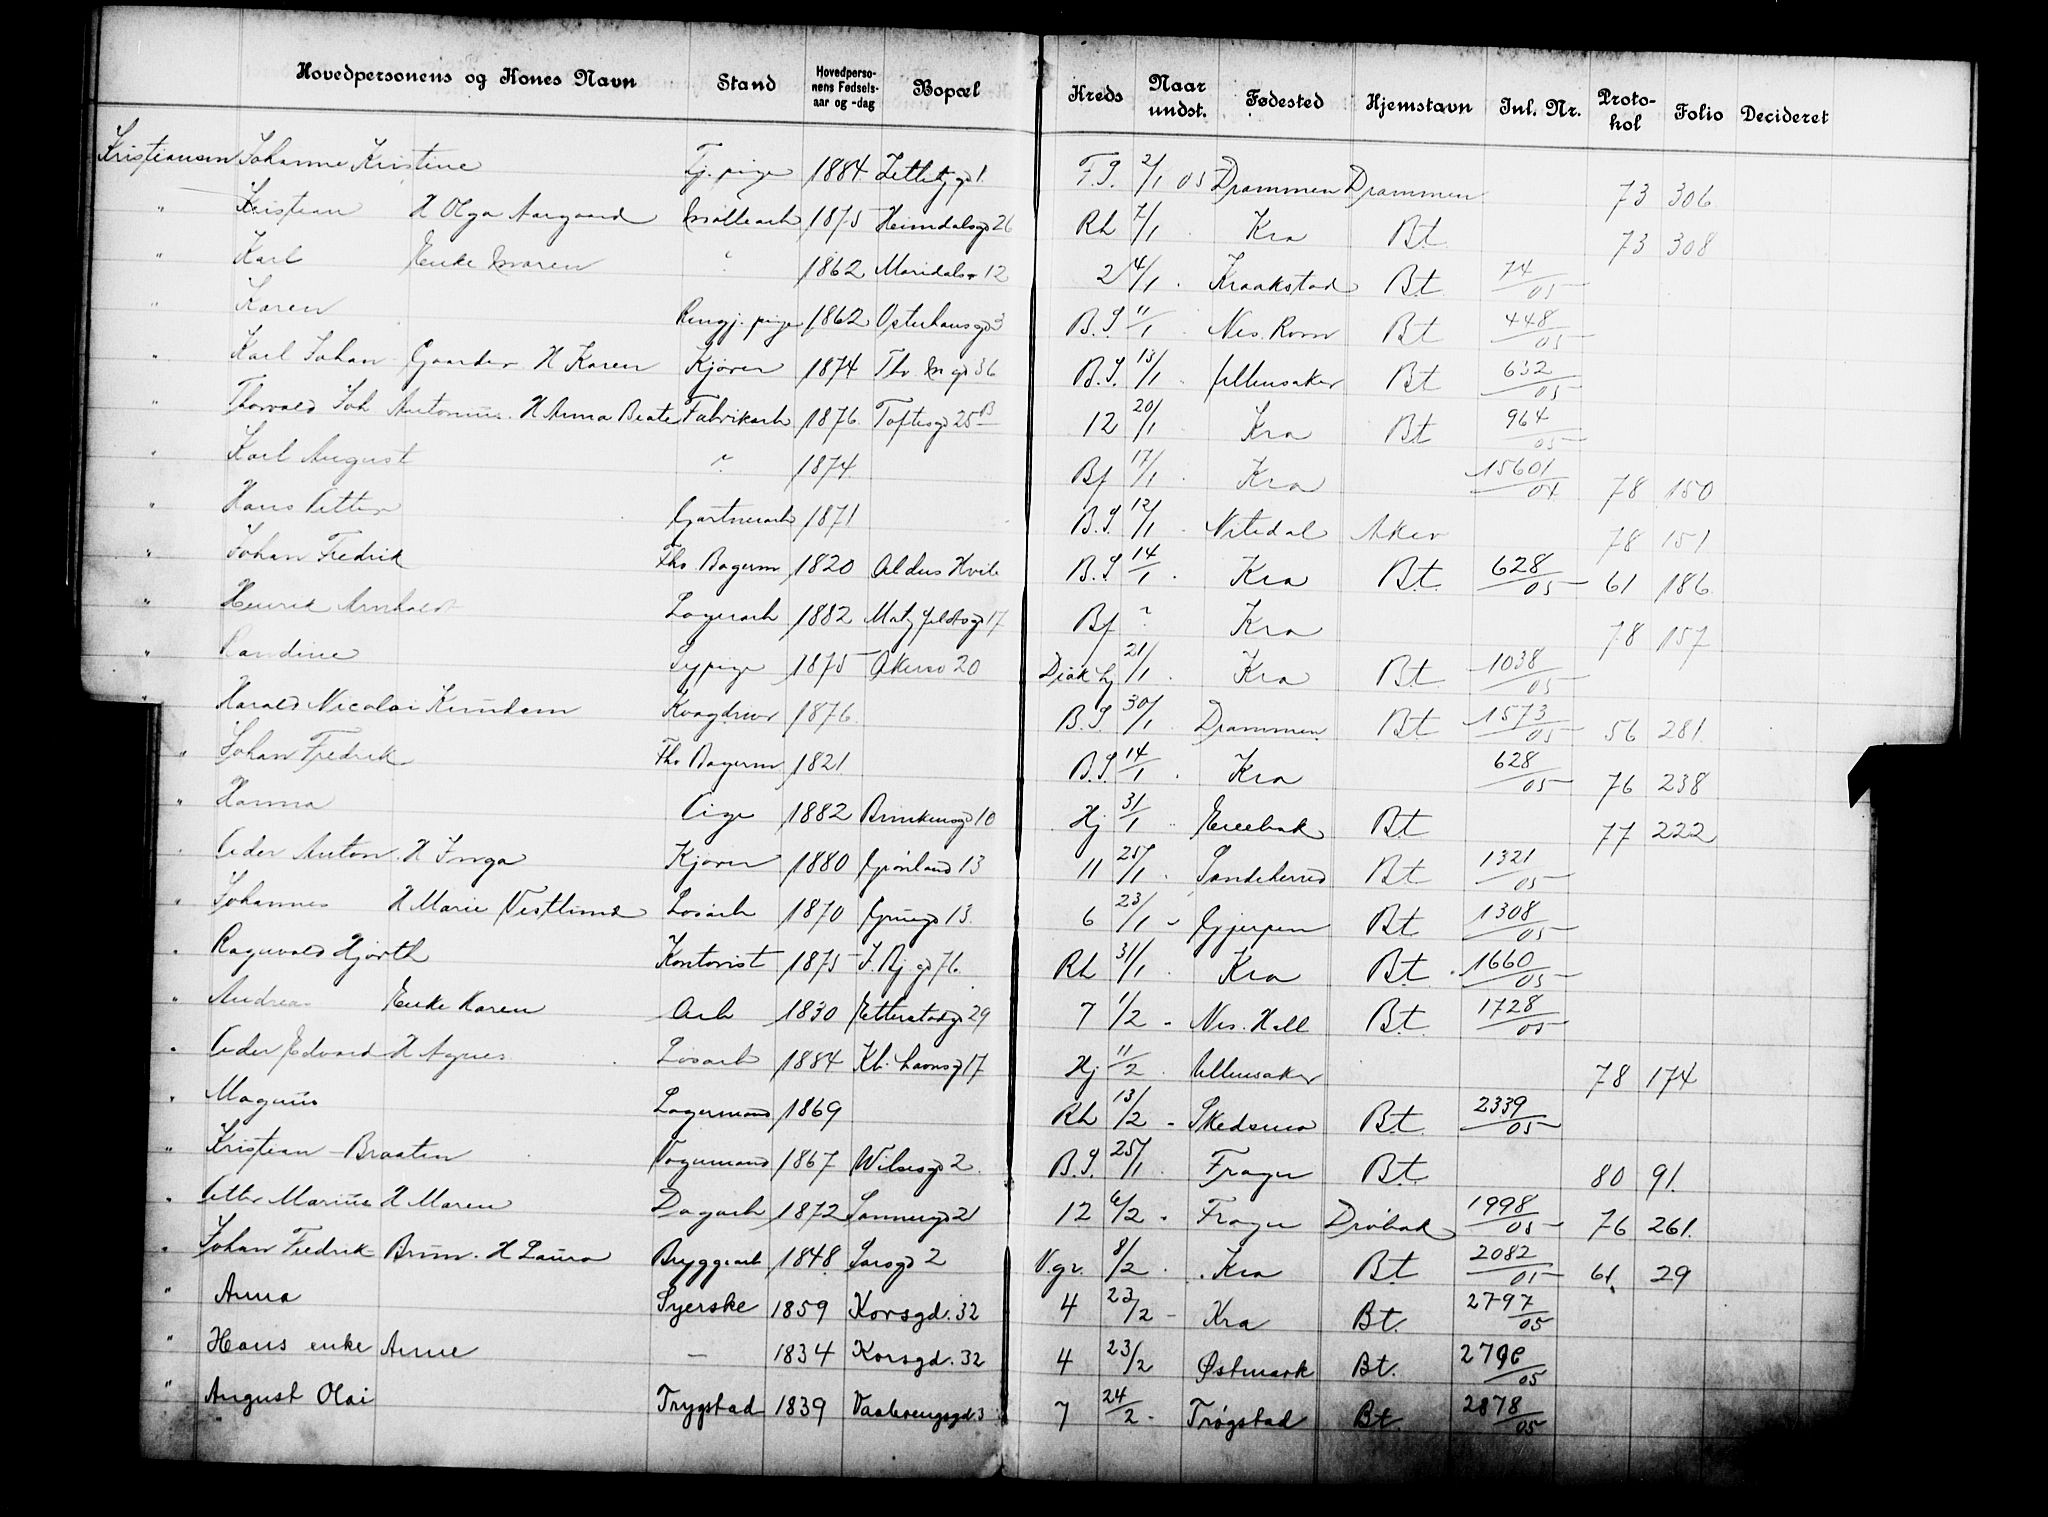 Hovedpersonens og Kones Navn Stand Hovedpersonens Fødselsaar og -dag Bopæl Kreds Naar undst. Fødested Hjemstavn Inl. Nr. Protokol Folio Decideret
Kristiansen Johanne Kristine Tj. pige 1884 1 F.S. 2/1 05 Drammen Drammen 73 306
" Kristian H Olga Aargaard 1875 Heimdalsgd 26 Rh 7/1 Kra Bt 73 308
" Karl Enke Maren " 1862 Maridalsv 12 2 4/1 Kraakstad Bt 74/05
" Karen Rengj. pige 1862 Osterhausgd 3 B.S. 11/1 Nes. Rom Bt 448/05
" Karl Johan Gaarder H Karen Kjører 1874 Th. M gd 36 B.S. 13/1 Ullensaker Bt 632/05
" Thorvald Joh Antonius. H Anna Beate Fabrikarb 1876 Toftesgd 25 B 12 20/1 Kra Bt 964/05
" Karl August ? 1874 Bf 17/1 Kra 15601/04 78 150
" Hans Petter Gartnerarb 1871 B.S. 12/1 Nitedal Aker 78 151
" Johan Fredrik Fhv. Bagerm 1820 Oldus Hvile B.S 14/1 Kra Bt. 628/05 61 186
" Henrik Arnholdt Lagerarb 1882 17 Bf ? Kra 78 157
" Randine Sypige 1875 Akersv 20 Diak hj 21/1 Kra Bt 1038/05
" Harald Nicolai Kvægdriver 1876 B.S. 30/1 Drammen Bt 1573/05 56 281
" Johan Fredrik Fhv Bagerm 1821 B.S. 14/1 Kra 628/05 76 238
" Hanna Pige 1882 Brinkensgd 10 Hj 31/1 Enebak Bt 77 222
" Peder Anton. H Inga Kjører 1880 Grønland 13 11 25/1 Sandeherred Bt 1321/05
" Johannes H Marie Vestlund Løsarb 1870 13. 6 23/1 Gjerpen Bt 1308/05
" Ragnvald Hjorth Kontorist 1875 Rh 31/1 Kra Bt 1660/05
" Andreas Enke Karen Arb 1830 Etterstadgd 29 7 1/2 Nes. Hall Bt. 1728/05
" Peder Edvard H Agnes Løsarb 1884 17 Hj 11/2 Ullensaker 78 174
" Magnus Lagermand 1869 Rh 13/2 Skedsmo Bt. 2339/05
" Kristian Braaten Vognmand 1867 Wilsesgd 2. B.S. 25/1 Frogn Bt. 80 91.
" Petter Marius H Maren Dagarb 1872 Sannergd 21 12 6/2 Frogn Drøbak 1998/05 76 261.
" Johan Fredrik Brun. H Laura Bryggearb 1848 Sarsgd 2 V.gr. 8/2 Kra Bt 2082/05 61. 29
" Anna Syerske 1859 Korsgd. 32 4 23/2 Kra Bt. 2797/05
" Hans enke Anne — 1834 Korsgd. 32 4 23/2 Østmark Bt. 2796/05
" August Olai Trygstad 1839 Vaalerengsgd. 3 7 24/2 Trøgstad Bt. 2878/05